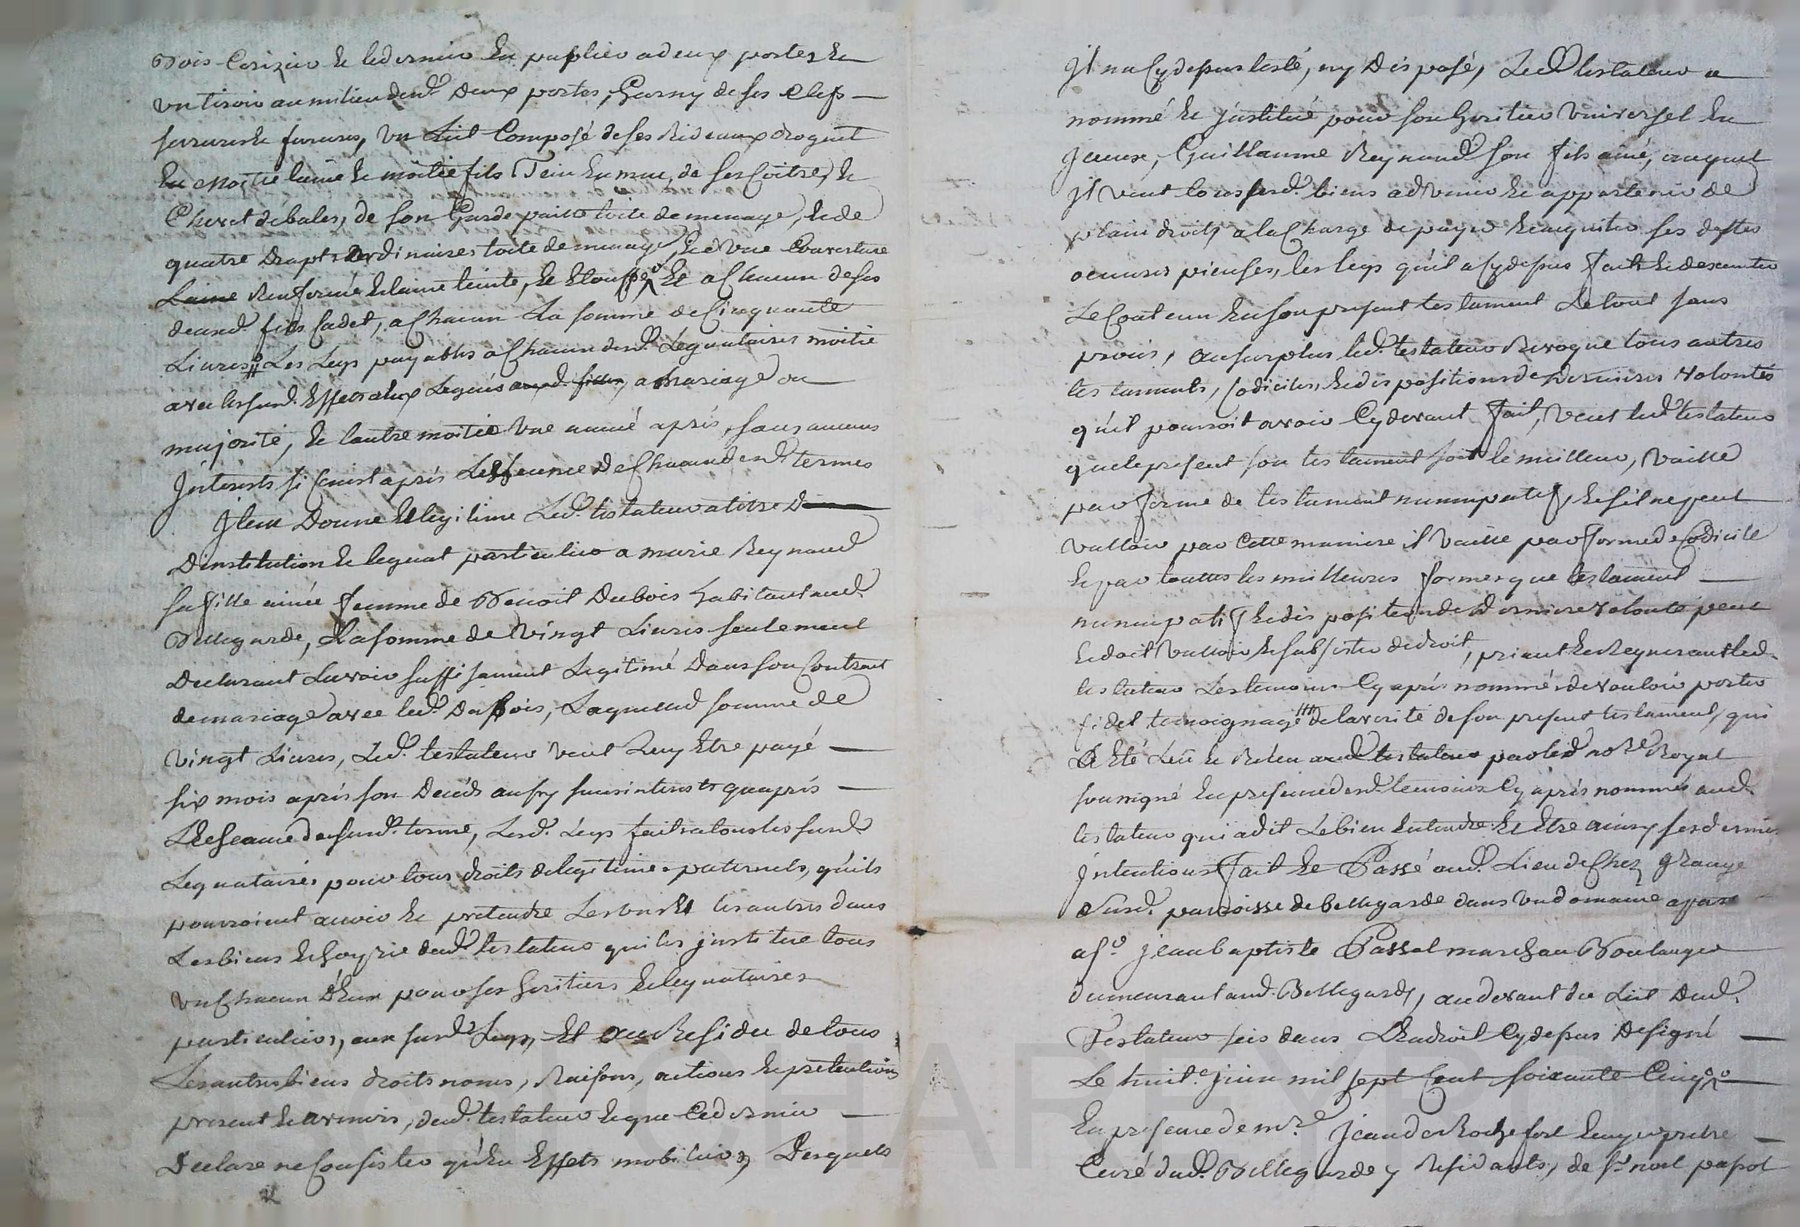 Bois Cerizier et le dernier en puplier a deux portes et
un tiroir au milieu desd. deux portes, Garny de ses clefs
serrures et ferrures, un Lit Composé de ses Rideaux droguet
moitié laine et moitié fils Tein en mue, de ses Coitre, et
Chevet de bales, de son Garde paille toile de menage, et de
quatre Draps ordinaires toile de menage et d'une Couverture
Laine et laine teinte, et Etouffe et a Chacun de ses
deux autres fils Cadet, a Chacun La somme de Cinquante
Livres Les Legs payables a Chacun desd. Legataires moitié
avec lesusd. Effets a eux Legués auxd. filles, a mariage ou
majorité, et l'autre moitié une année aprés, sans aucuns
Interests si ce n'est aprés L'Echeance de Chacun desd. termes
Item Donne et legitime Led. testateur a titre D
D'institution et legat particulier a marie Reynaud
sa fille ainée femme de Benoit Dubois habitant aud.
Bellegarde, La somme de Vingt Livres seulement
Declarant L'avoir suffisament Legitimé Dans son Contract
de mariage avec led. Dubois, Laquelle somme de
Vingt Livres, Led. testateur veut Luy Etre payé
six mois aprés son Decés aussy sans interests qu'aprés
L'Echeance du susd. terme, Lesd. Legs faits a tous les susd.
Legataires pour tous droits de legitime paternels, qu'ils
pourroient avoir et pretendre Les uns et les autres dans
Les biens et hoyrie dud. testateur qui les institue tous
un Chacun D'Eux pour ses heritiers et legataires
particuliers, aux susd. Legs, Et au Residu de tous
Les autres biens droits noms, Raisons, actions et pretentions
present et avenirs, dud. testateur et que Ce dernier
Declare ne Consister qu'En Effets mobiliers, Desquels
Il n'a Cy depus testé, ny Disposé, Led. testateur a
nommé et Institué pour son heritier Universel
Guillaume Reynaud son fils ainé, auquel
Il veut tous sesd. biens advenir et appartenir de
plain droit, a la Charge de payer et acquitter ses dettes
oeuvres pieuses, les legs qu'il a Cy depus fait et d'executer
Le Contenu En son present testament Le tout sans
procés, au surplus led. testateur Revoque tous autres
testaments, Codiciles, et dispositions de Dernieres Volontés
qu'il pourroit avoir Cy devant fait, veut led. testateur
que le present son testament soit le meilleur, Vaille
par forme de testament nuncupatif, et s'il ne peut
Valloir par Cette maniere il Vaille par forme de Codicile
et par touttes les meilleures formes que testament
nuncupatif et disposition de Derniere Volonté peut
et doit Valloir et subsister de droit, priant et Requerant led.
testateur Les temoins Cy aprés nommés de vouloir porter
fidel temoignage de la verité de son present testament, qui
A Eté Leu et Releu aud. testateur par led. no.re Royal
soussigné En presence desd. temoins Cy aprés nommés aud.
testateur qui a dit Le bien Entendre et Etre ainsy ses dernieres
Intentions fait et Passé aud. Lieu de Chez grange
susd. paroisse de bellegarde dans un domaine apart
a s.r Jean baptiste Passel marchan Boulanger
demeurant aud. Bellegarde, au devant du Lit Dud.
Testateur sis dans L'Endroit Cy depus Designé
Le huit.e juin mil sept Cent soixante Cinq
En presence de m.re Jean de Rochefort prêtre
Curé dud. Bellegarde y Residants, de s.r noel papot